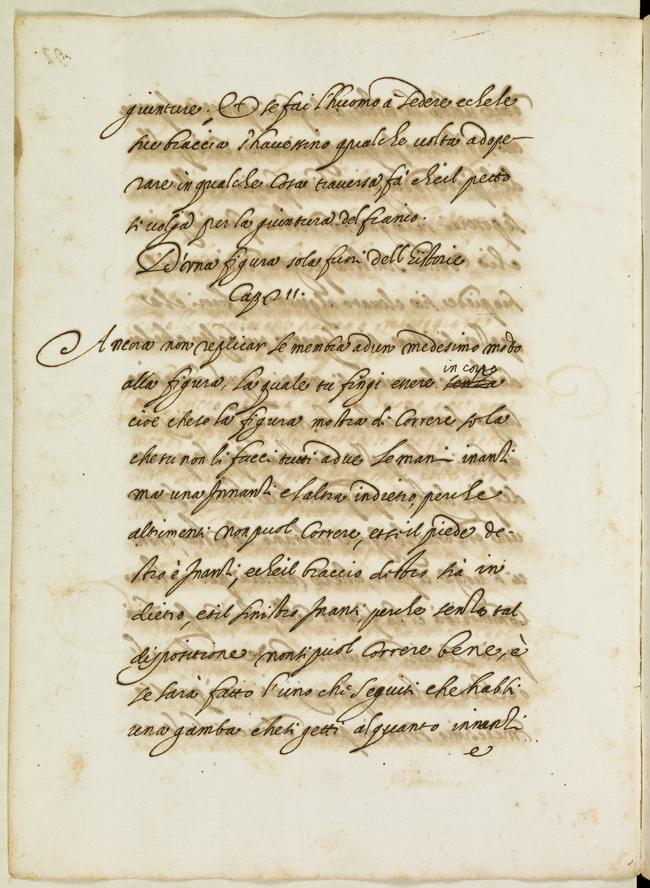 giunture. Et se fai l'huomo à sedere e che le
sue braccia s'havessino qualche volta adope-
rare in qualche cosa traversa, fà che il petto
si volga per la giuntura del fianco.
D'una figura sola fuori dell'historie
Cap. 11.
Ancora non replicar le membra ad un medesimo modo
alla figura, la quale tu fingi essere in corpo senza
cioè che se la figura mostra di Correre sola
che tu non li facci tutti a due le mani inanti
ma una Innanti e l'altra indietro, perche
altrimenti non puol Correre, et se il piede de-
stro è Inanti, e che il braccio destro sia in
dietro, et il sinistro Inanti, perche senza tal
dispositione non si puol Correre bene, è
se sarà fatto l'uno che seguiti che habbi
una gamba che si getti alquanto innanti
e